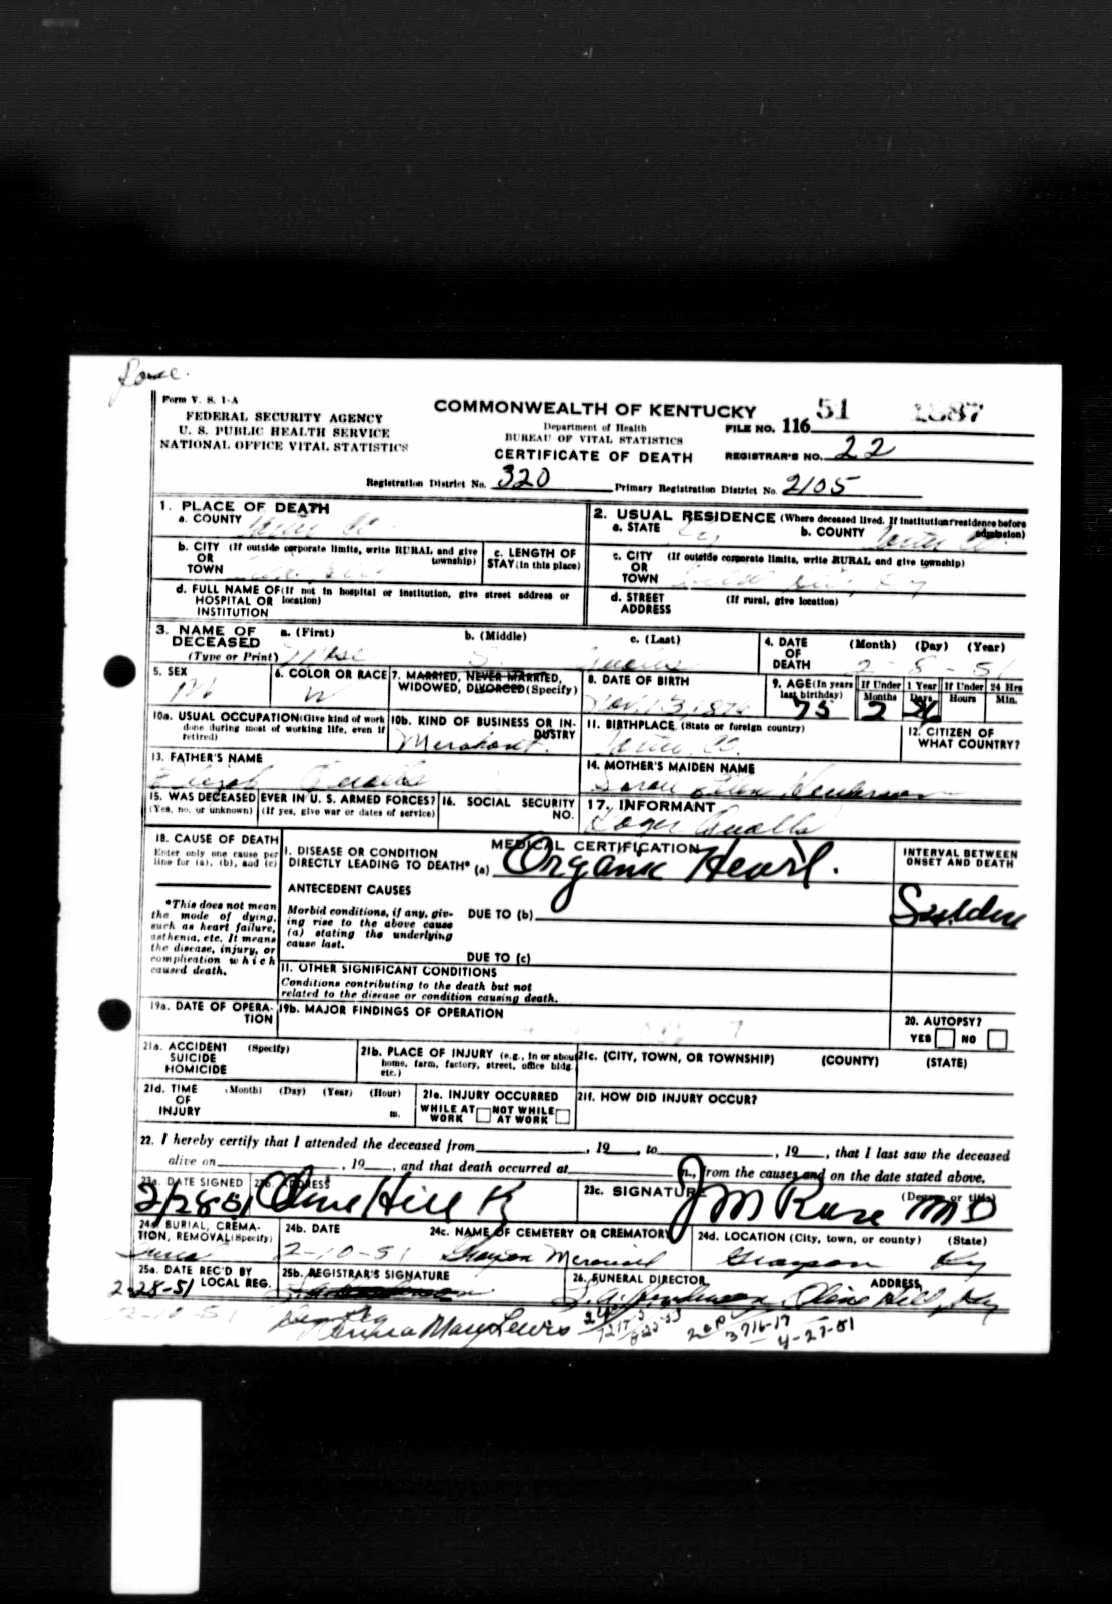 Form V. S. 1-A
FEDERAL SECURITY AGENCY
U. S. PUBLIC HEALTH SERVICE
NATIONAL OFFICE VITAL STATISTICS
COMMONWEALTH OF KENTUCKY
Department of Health
BUREAU OF VITAL STATISTICS
CERTIFICATE OF DEATH
FILE NO. 116 51
REGISTRAR'S NO. 22
Registration District No. 320 Primary Registration District No. 2105
1. PLACE OF DEATH
a. COUNTY
2. USUAL RESIDENCE (Where deceased lived. If institution: residence before admission)
a. STATE Ky b. COUNTY
b. CITY (If outside corporate limits, write RURAL and give township)
OR
TOWN
c. LENGTH OF STAY (in this place)
c. CITY (If outside corporate limits, write RURAL and give township)
OR
TOWN
d. FULL NAME OF (If not in hospital or institution, give street address or location)
HOSPITAL OR
INSTITUTION
d. STREET ADDRESS (If rural, give location)
3. NAME OF DECEASED
(Type or Print)
a. (First) b. (Middle) c. (Last)
4. DATE OF DEATH (Month) (Day) (Year)
2-8-51
5. SEX
M
6. COLOR OR RACE
W
7. MARRIED, NEVER MARRIED, WIDOWED, DIVORCED (Specify)
8. DATE OF BIRTH
Nov. 13, 187
9. AGE (In years last birthday) 75
If Under 1 Year Months 2 Days
If Under 24 Hrs Hours Min.
10a. USUAL OCCUPATION (Give kind of work done during most of working life, even if retired)
10b. KIND OF BUSINESS OR INDUSTRY
Merchant.
11. BIRTHPLACE (State or foreign country)
12. CITIZEN OF WHAT COUNTRY?
13. FATHER'S NAME
14. MOTHER'S MAIDEN NAME
Sarah Ellen Henderson
15. WAS DECEASED EVER IN U. S. ARMED FORCES?
(Yes, no, or unknown) (If yes, give war or dates of service)
16. SOCIAL SECURITY NO.
17. INFORMANT
Roger Qualls
18. CAUSE OF DEATH
Enter only one cause per line for (a), (b), and (c)
*This does not mean the mode of dying, such as heart failure, asthenia, etc. It means the disease, injury, or complication which caused death.
MEDICAL CERTIFICATION
I. DISEASE OR CONDITION
DIRECTLY LEADING TO DEATH* (a) Organic Heart.
INTERVAL BETWEEN ONSET AND DEATH
Sudden
ANTECEDENT CAUSES
Morbid conditions, if any, giving rise to the above cause (a) stating the underlying cause last.
DUE TO (b)
DUE TO (c)
II. OTHER SIGNIFICANT CONDITIONS
Conditions contributing to the death but not related to the disease or condition causing death.
19a. DATE OF OPERATION
19b. MAJOR FINDINGS OF OPERATION
20. AUTOPSY?
YES NO
21a. ACCIDENT SUICIDE HOMICIDE (Specify)
21b. PLACE OF INJURY (e.g., in or about home, farm, factory, street, office bldg. etc.)
21c. (CITY, TOWN, OR TOWNSHIP) (COUNTY) (STATE)
21d. TIME OF INJURY (Month) (Day) (Year) (Hour) m.
21e. INJURY OCCURRED
WHILE AT WORK NOT WHILE AT WORK
21f. HOW DID INJURY OCCUR?
22. I hereby certify that I attended the deceased from , 19 , to , 19 , that I last saw the deceased
alive on , 19 , and that death occurred at m., from the causes and on the date stated above.
23a. DATE SIGNED
2/28 51
23b. ADDRESS
Olive Hill K
23c. SIGNATURE (Degree or title)
J M Rose M D
24a. BURIAL, CREMATION, REMOVAL (Specify)
24b. DATE
2-10-51
24c. NAME OF CEMETERY OR CREMATORY
Grayson Memorial
24d. LOCATION (City, town, or county) (State)
Grayson Ky
25a. DATE REC'D BY LOCAL REG.
2-28-51
25b. REGISTRAR'S SIGNATURE
26. FUNERAL DIRECTOR ADDRESS
Henderson, Olive Hill, Ky
2-12-51
Mary Lewis
3716-17
4-27-51